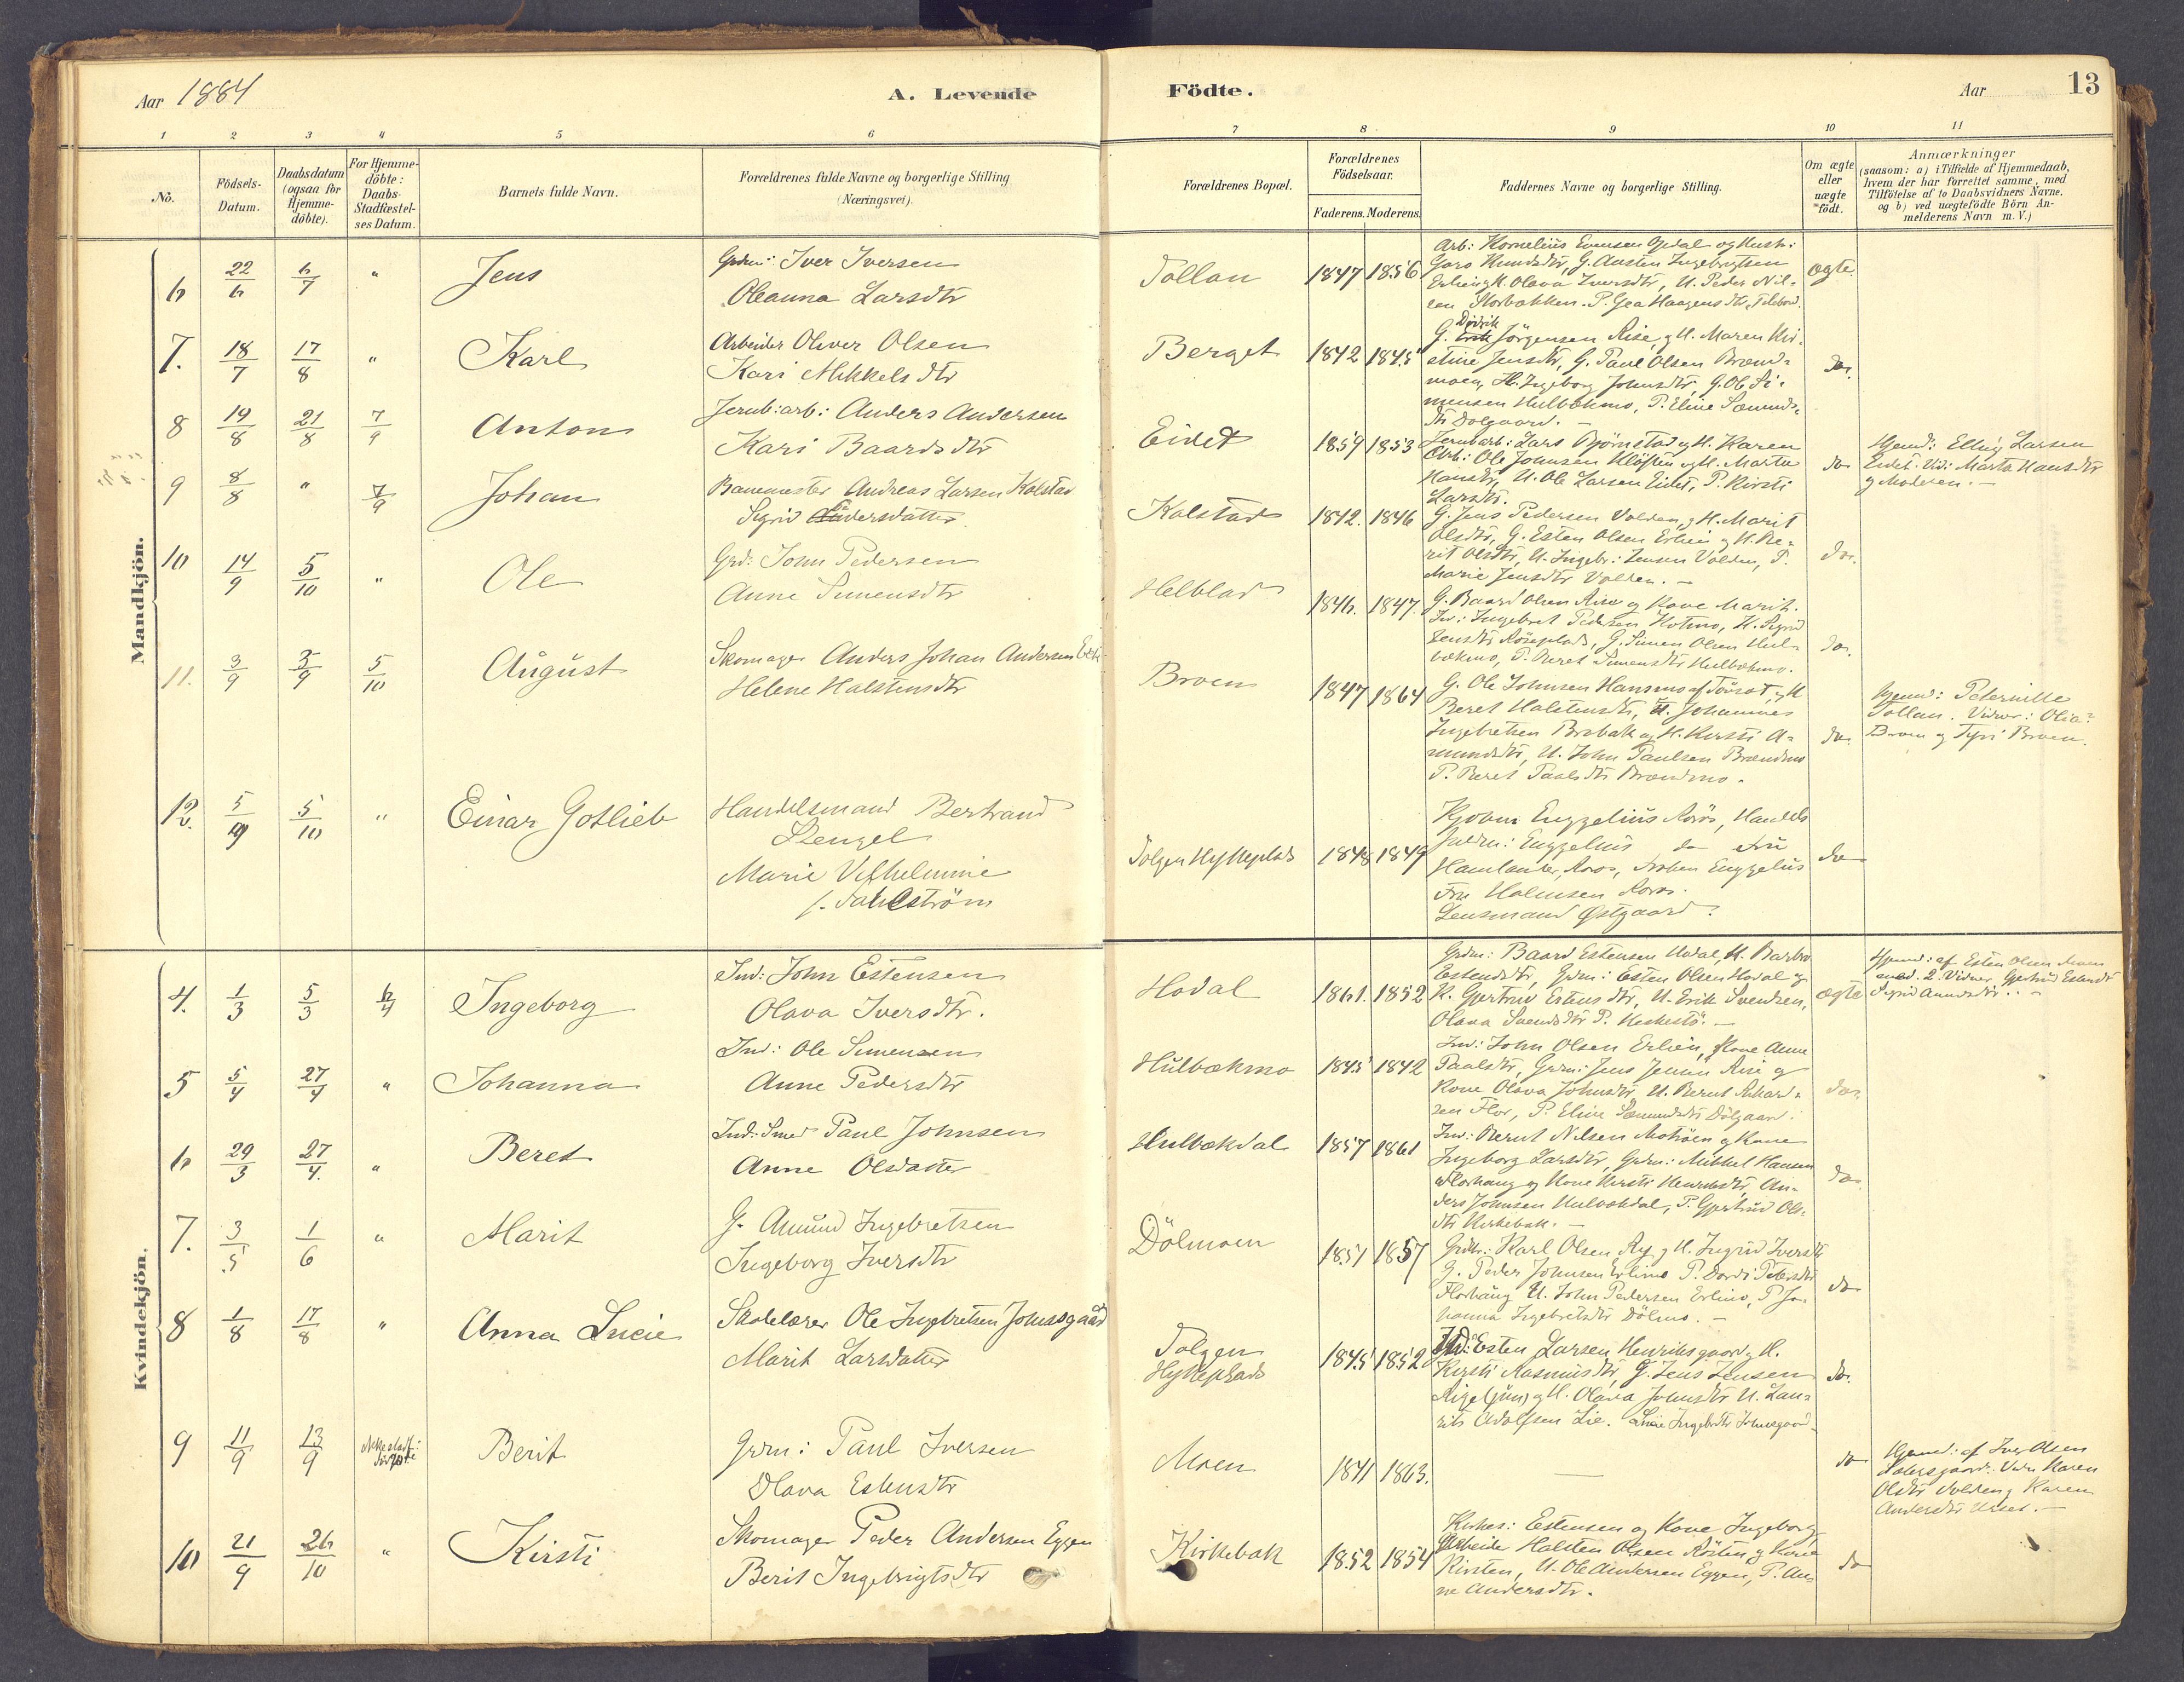 Aar 1884
A. Levende
Födte.
Aar
13
1 2 3 4 5 6 7 8 9 10 11
No.
Födsels-
Datum.
Daabsdatum
(ogsaa for
Hjemme-
döbte).
For Hjemme-
döbte:
Daabs-
Stadfæstel-
ses Datum.
Barnets fulde Navn.
Forældrenes fulde Navne og borgerlige Stilling
(Næringsvei).
Forældrenes Bopæl.
Forældrenes
Födselsaar.
Faderens. Moderens.
Faddernes Navne og borgerlige Stilling.
Om ægte
eller
uægte
födt.
Anmærkninger
(saasom: a) i Tilfælde af Hjemmedaab,
hvem der har forrettet samme, med
Tilföielse af to Daabsvidners Navne,
og b) ved uægtefödte Börn An-
melderens Navn m. V.)
Mandkjön.
6 22/6 6/7 " Jens
Iver Iversen
Oleanna Larsdtr
Tollan 1847 1856
Arb: Kornelius Evensen Opdal og Hustr:
Goro Knudsdtr, G. Austen Ingebrigtsen
Erlien g K. Olava Iversdtr, U. Peder Nil-
sen Storbækken. P. Gea Haagensdtr
ægte.
7. 18/7 17/8 " Karl
Arbeider Oliver Olsen
Kari Mikkelsdtr
Berget 1842 1845
G. Didrik Jörgensen Aise, g H. Maren Kri-
stine Jensdtr, G. Paul Olsen Brænd-
moen, H. Ingeborg Johnsdtr, G. Ole Si-
mensen Hulbækmo, P. Eline Sæmunds-
dtr Dølgaard. —
do.
8 19/8 21/8 7/9 Anton
Jernb: arb: Anders Andersen
Kari Baardsdtr
Eidet 1859 1853
Jernbarb: Lars Bjørnstad og H. Karen
Arb: Ole Johnsen Kløften og H. Marte
Hansdtr, U. Ole Larsen Eidet, P. Kirsti
Larsdtr.
do
Hjemd: Elling Larsen
Eidet. Vid: Marta Hansdtr
g Moderen. —
9 8/8 " 7/9 Johan
Banemester Andreas Larsen Kolstad
Sigrid Andersdatter
Kolstad 1842. 1846
G. Jens Pedersen Volden, g H. Marit
Olsdtr, G. Esten Olsen Erlien g H. Be-
rit Olsdtr, U. Ingebr: Jensen Volden, P.
Marie Jensdtr Volden. —
do.
10 14/9 5/10 " Ole
Grd: John Pedersen
Anne Simensdtr
Helblad 1846. 1847.
G. Baard Olsen Aise og Kone Marit.
Ind: Ingebret Pedersen Hotmo, H. Sigrid
Jensdtr, G. Simen Olsen Hul-
bækmo, P. Beret Simensdtr Hulbækmo.
do.
11. 3/9 5/9 5/10 August
Skomager Anders Johan Andersen
Helene Halstensdtr
Broen 1847 1864
G. Ole Johnsen Hansmo af Tönset, g H
Beret Halstensdtr, U. Johannes
Ingebretsen Brobak og H. Kirsti A-
mundsdtr, U. John Paulsen Brændmo
P. Beret Paulsdtr Brændmo.
do.
Hjemd: Peternille
Tollan. Vidner: Olia?
Broen g Tyri Broen.
12. 5/9 5/10 " Einar Gotlieb
Handelsmand Bertrand
Stengel
Marie Vilhelmine
f. Dahlström
Tolgen Hytteplads 1848 1849
Kjøbm Engzelius Røros, Handels
fuldm: Engzelius do Fru
Røros, Engzelius
Fru Holmsen Røros.
Lensmand Østgaard.
do
Kvindekjön.
4. 1/3 5/3 6/4 Ingeborg
Ind: John Estensen
Olava Iversdtr.
Hodal 1861. 1852
Grdm: Baard Estensen Hodal, H. Barbro
Estensdtr, Grdm: Esten Olsen Hodal og
K. Gjertrud Estensdtr, U. Erik Svendsen,
Olava Svendsdtr P.
ægte
Hjemd: af Esten Olsen Moen
2. Vidner Gjertrud Estensdtr
Sigrid Amundsdtr. —
5 5/4 27/4 " Johanna
Ind: Ole Simensen
Anne Pedersdtr
Hulbækmo 1845 1842
Ind: John Olsen Erlien, Kone Anne
Paulsdtr, Grdm: Jens Jensen Aise og
Kone Olava Johnsdtr, U. Bernt
sen Flor, P. Eline Sæmundsdtr Dölgaard.
do.
6 29/3 27/4. " Beret
Ind: Smed Paul Johnsen
Anne Olsdatter
Hulbækdal 1857 1861
Ind: Bernt Nilsen Motröen g Kone
Ingeborg Larsdtr, Grdm: Mikkel Hansen
Florhaug og Kone Kirsti Henriksdtr, An-
ders Johnsen Hulbækdal, P. Gjertrud Ols-
dtr Kirkebak. —
do
7. 3/5 1/6 " Marit
G. Amund Ingebretsen
Ingeborg Iversdtr
Dölmoen 1851 1857
Grdbr: Karl Olsen Ry g H. Ingrid Iversdtr
G. Peder Johnsen Erlimo P. Dordi Pedersdtr
Florhaug U. John Pedersen Erlimo, P Jo-
hanna Ingebretsdtr Dölmo. —
do
8 1/8 17/8 " Anna Lucie
Skolelærer Ole Ingebretsen Johnsgaard
Marit Larsdatter
Tolgen
Hytteplads 1845 1852
Ind: Esten Larsen Henriksgaard g H.
Kirsti Rasmusdtr, G. Jens Jensen
Aise (jun) g H. Olava Johnsdtr U. Lau-
rits Adolfsen Lie. Lucie Ingebrdtr Johnsgaard
do.
9 11/9 13/9 Ikke stadf:
Berit
Grdm: Paul Iversen
Olava Estensdtr
Moen 1841 1863. —
do
Hjemd: af Iver Olsen
Vidn Karen
Olsdtr Volden g Karen
Andersdtr —
10 21/9 26/10 " Kirsti
Skomager Peder Andersen Eggen
Berit Ingebrigtsdtr
Kirkebak 1852 1854
Kirkes: Estensen og Kone Ingeborg
Arbeider Halsten Olsen Røsten g Kone
Kirsten, U. Ole Andersen Eggen, P. An-
ne Andersdtr.
do